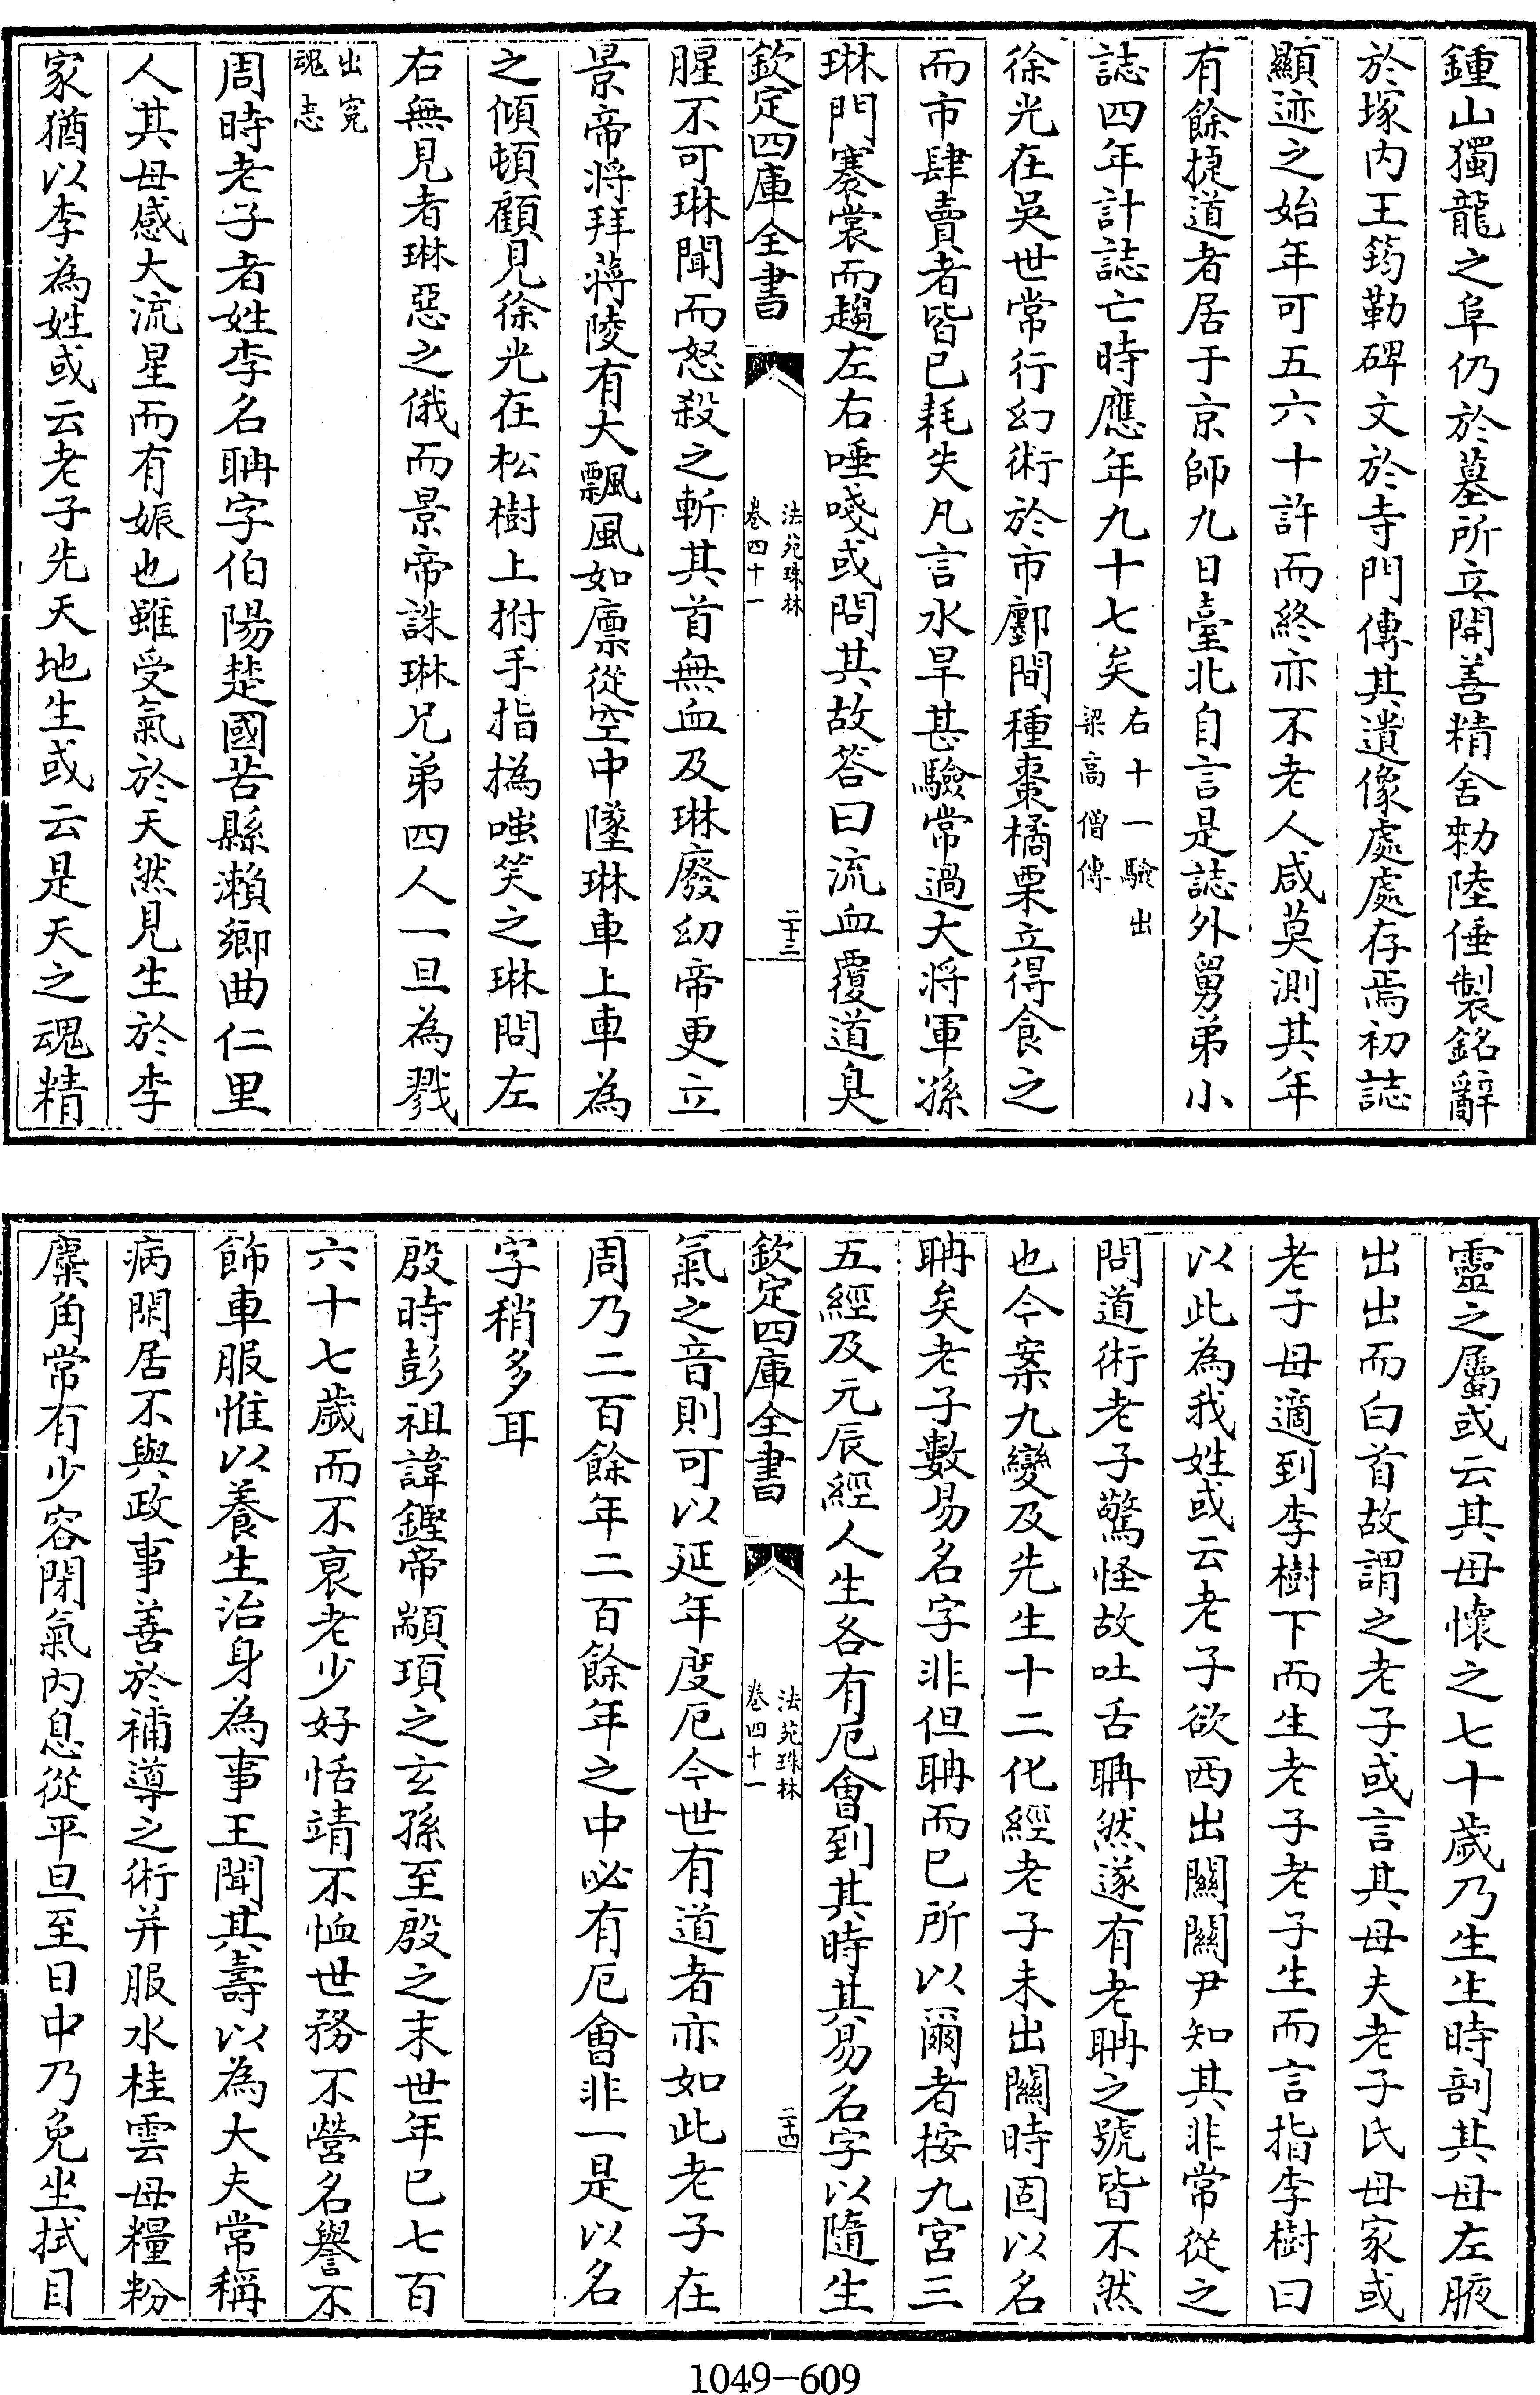 鍾山獨龍之阜仍於墓所立開善精舍勑陸倕製銘辭
於塚内王筠勒碑文於寺門傳其遺像處處存焉初誌
顯迹之始年可五六十許而終亦不老人咸莫測其年
有餘捷道者居于京師九日臺北自言是誌外舅弟小
誌四年計誌亡時應年九十七矣右十一驗出梁高僧傳
徐光在吳世常行幻術於市鄽間種棗橘栗立得食之
而市肆賣者皆已耗失凡言水旱甚驗常過大将軍孫
琳門褰裳而趨左右唾唾或問其故答曰流血覆道臭
欽定四庫全書
法苑珠林
卷四十一
二十三
腥不可琳聞而怒殺之斬其首無血及琳廢幼帝更立
景帝将拜蔣陵有大飄風如廪從空中墜琳車上車為
之傾頓顧見徐光在松樹上拊手指撝嗤笑之琳問左
右無見者琳惡之俄而景帝誅琳兄弟四人一旦為戮
出寃魂志
周時老子者姓李名聃字伯陽楚國苦縣瀨鄉曲仁里
人其母感大流星而有娠也雖受氣於天然見生於李
家猶以李為姓或云老子先天地生或云是天之魂精
靈之屬或云其母懷之七十歲乃生生時剖其母左腋
出出而白首故謂之老子或言其母夫老子氏母家或
老子母適到李樹下而生老子老子生而言指李樹曰
以此為我姓或云老子欲西出關關尹知其非常從之
問道術老子驚怪故吐舌聃然遂有老聃之號皆不然
也今案九變及先生十二化經老子未出關時固以名
聃矣老子數易名字非但聃而已所以爾者按九宮三
五經及元辰經人生各有厄會到其時其易名字以隨生
欽定四庫全書
法苑珠林
卷四十一
二十四
氣之音則可以延年度厄今世有道者亦如此老子在
周乃二百餘年二百餘年之中必有厄會非一是以名
字稍多耳
殷時彭祖諱鏗帝顓頊之玄孫至殷之末世年已七百
六十七歲而不衰老少好恬靖不恤世務不營名譽不
飾車服惟以養生治身為事王聞其壽以為大夫常稱
病閑居不與政事善於補導之術并服水桂雲母糧粉
麋角常有少容閉氣内息從平旦至日中乃免坐拭目
1049-609